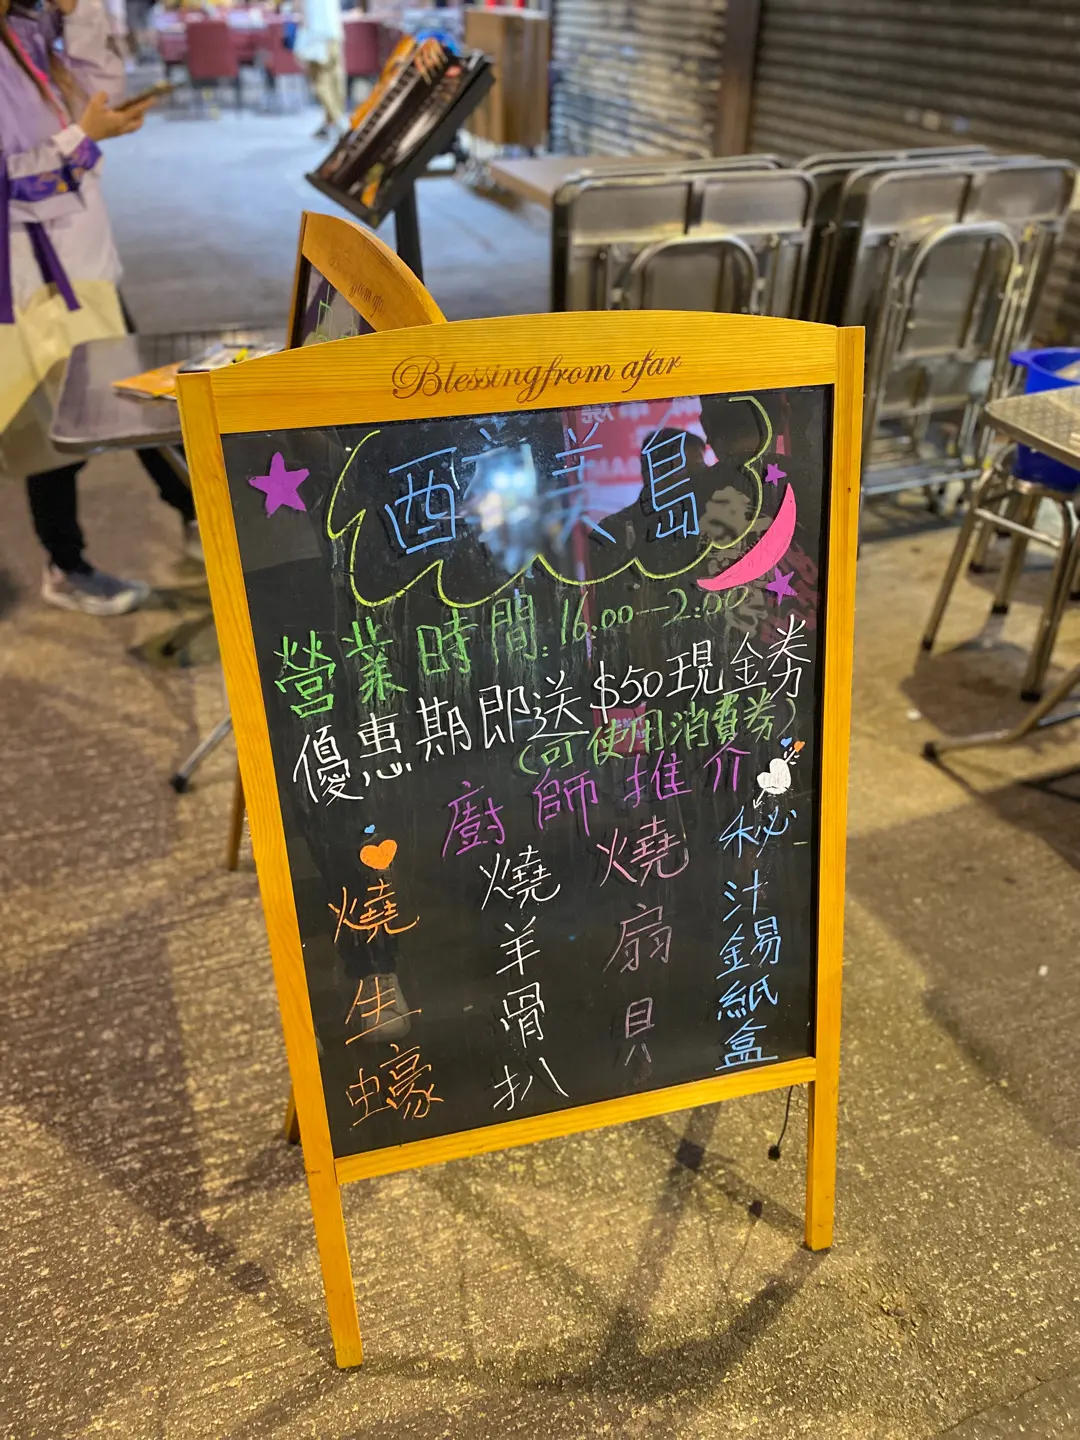 Blessing from afar
醉美島
營業時間:16:00—2:00
優惠期即送$50現金劵
(可使用消費券)
廚師推介
燒生蠔
燒羊骨扒
燒扇貝
秘汁錫紙盒